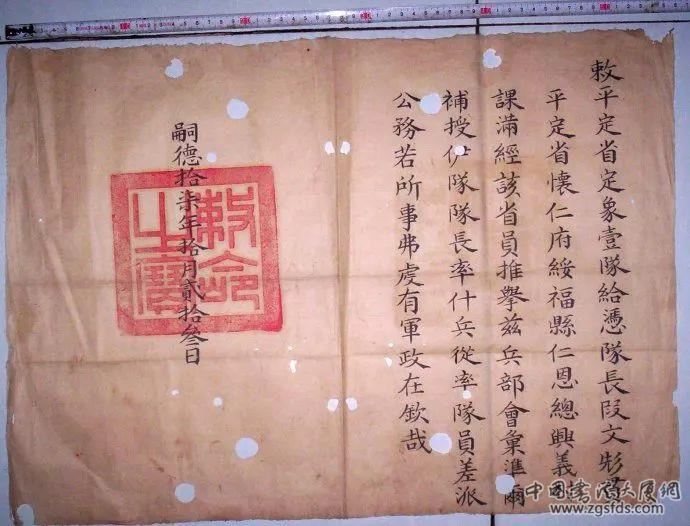 敕平定省定象壹隊給憑隊長段文彭
平定省懷仁府綏福縣仁恩總興義
課滿經該省員推舉茲兵部會彙準爾
補授伊隊隊長率什兵從率隊員差派
公務若所事弗虔有軍政在欽哉
嗣德拾柒年拾月貳拾叁日
敕命之寶
中國書法大廈網
www.zgsfds.com